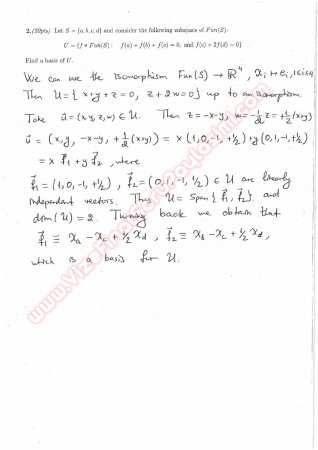 2.(20pts) Let S = {a, b, c, d} and consider the following subspace of Fun(S):
U = {f ∈ Fun(S) : f(a) + f(b) + f(c) = 0, and f(c) + 2f(d) = 0}
Find a basis of U.
We can use the isomorphism Fun(S) → ℝ⁴, χᵢ ↦ eᵢ, 1≤i≤4
Then U = { x+y+z=0, z+2w=0} up to an isomorphism.
Take u⃗ = (x,y,z,w) ∈ U. Then z = -x-y, w = -1/2 z = +1/2 (x+y)
u⃗ = (x, y, -x-y, +1/2 (x+y)) = x (1,0,-1,+1/2) + y (0,1,-1,+1/2)
= x f⃗₁ + y f⃗₂, where
f⃗₁ = (1,0,-1,+1/2), f⃗₂ = (0,1,-1,1/2) ∈ U are linearly
independent vectors. Thus U = Span{f⃗₁, f⃗₂} and
dim(U) = 2. Turning back we obtain that
f⃗₁ ≡ χₐ - χ_c + 1/2 χ_d, f⃗₂ ≡ χ_b - χ_c + 1/2 χ_d,
which is a basis for U.